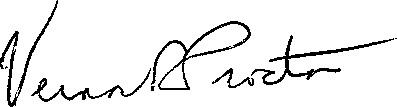 Vernon R Proctor